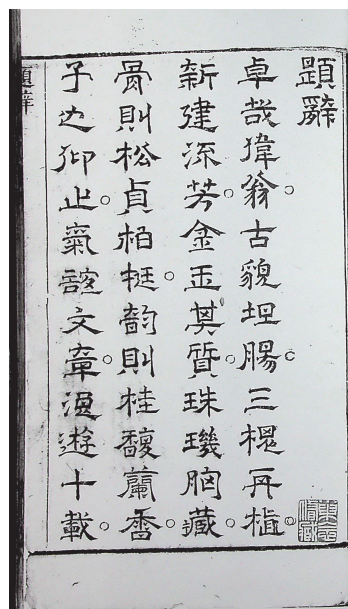 題辭
卓哉偉翁。古貌坦腸。三槐再植。
新建流芳。金玉其質。珠璣胸藏。
骨則松貞柏挺。韵則桂馥蘭香。
子也仰止。氣誼文章。遊十載。
題辭